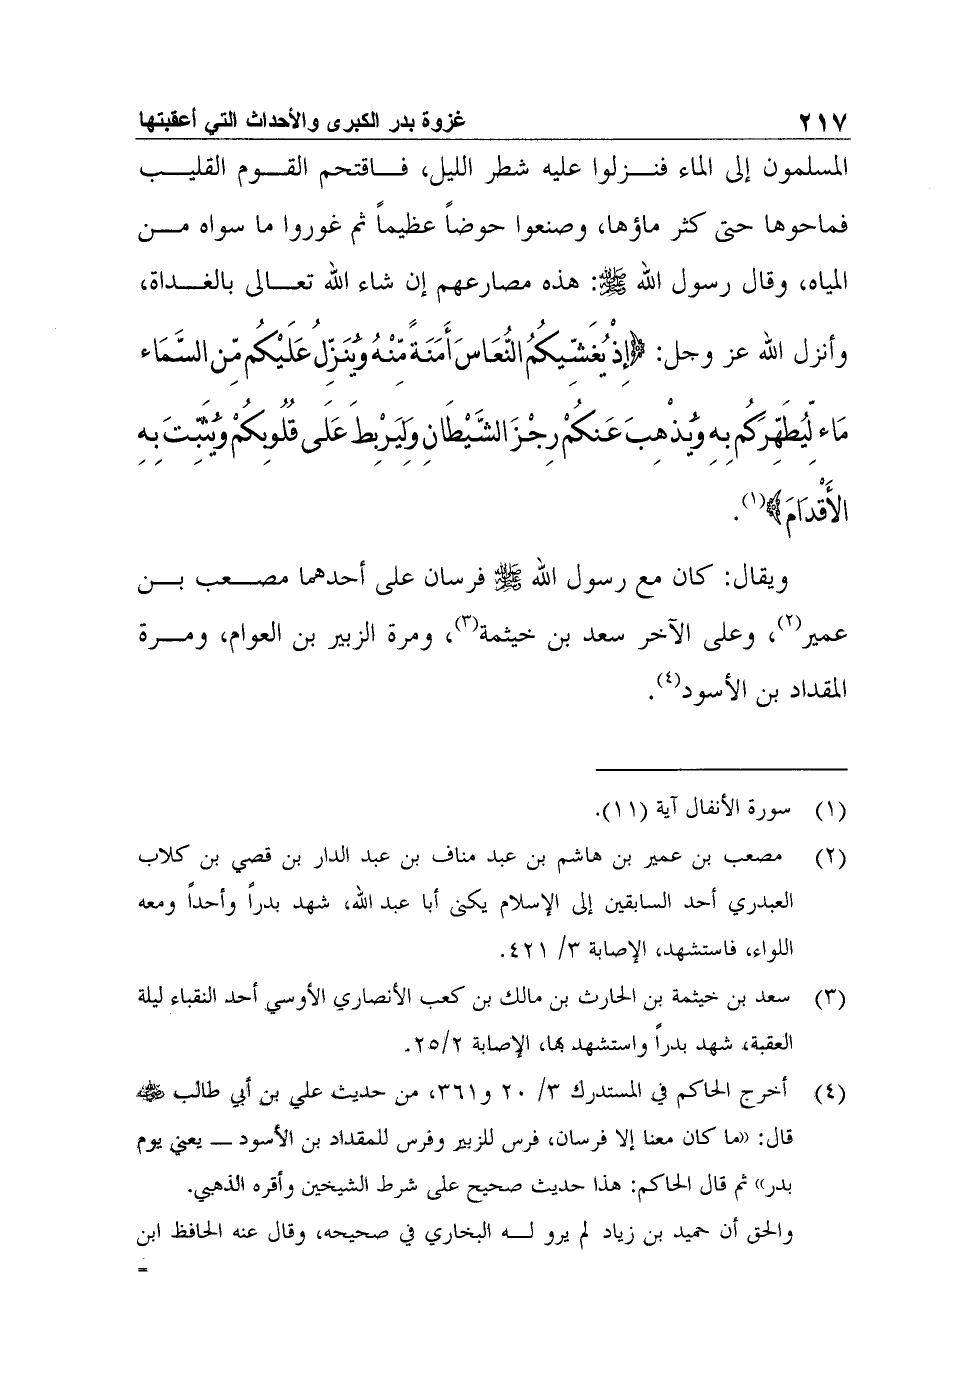 ٢١٧ غزوة بدر الكبرى والأحداث التي أعقبتها
المسلمون إلى الماء فنـزلوا عليه شطر الليل، فـاقتحم القـوم القليـب
فماحوها حتى كثر ماؤها، وصنعوا حوضاً عظيماً ثم غوروا ما سواه مـن
المياه، وقال رسول الله ﷺ: هذه مصارعهم إن شاء الله تعـالى بالغـداة،
وأنزل الله عز وجل: ﴿إِذْ يُغَشِّيكُمُ النُّعَاسَ أَمَنَةً مِّنْهُ وَيُنَزِّلُ عَلَيْكُم مِّن السَّمَاءِ
مَاء لِّيُطَهِّرَكُم بِهِ وَيُذْهِبَ عَنكُمْ رِجْزَ الشَّيْطَانِ وَلِيَرْبِطَ عَلَى قُلُوبِكُمْ وَيُثَبِّتَ بِهِ
الأَقْدَامَ﴾(١).
ويقال: كان مع رسول الله ﷺ فرسان على أحدهما مصـعب بـن
عمير(٢)، وعلى الآخر سعد بن خيثمة(٣)، ومرة الزبير بن العوام، ومـرة
المقداد بن الأسود(٤).
(١) سورة الأنفال آية (١١).
(٢) مصعب بن عمير بن هاشم بن عبد مناف بن عبد الدار بن قصي بن كلاب
العبدري أحد السابقين إلى الإسلام يكنى أبا عبد الله، شهد بدراً وأحداً ومعه
اللواء، فاستشهد، الإصابة ٣/ ٤٢١.
(٣) سعد بن خيثمة بن الحارث بن مالك بن كعب الأنصاري الأوسي أحد النقباء ليلة
العقبة، شهد بدراً واستشهد بها، الإصابة ٢/٢٥.
(٤) أخرج الحاكم في المستدرك ٣/ ٢٠ و٣٦١، من حديث علي بن أبي طالب ﷺ
قال: «ما كان معنا إلا فرسان، فرس للزبير وفرس للمقداد بن الأسود ــ يعني يوم
بدر» ثم قال الحاكم: هذا حديث صحيح على شرط الشيخين وأقره الذهبي.
والحق أن حميد بن زياد لم يرو لـه البخاري في صحيحه، وقال عنه الحافظ ابن
=